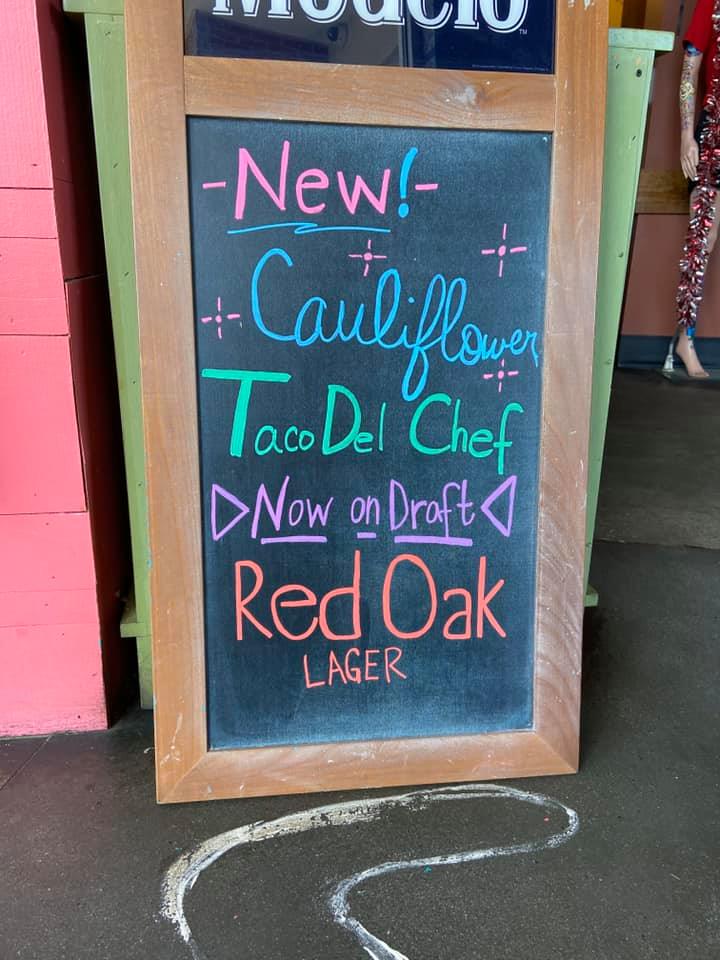 Modelo
TM
-New!-
Cauliflower
Taco Del Chef
Now on Draft
Red Oak
LAGER